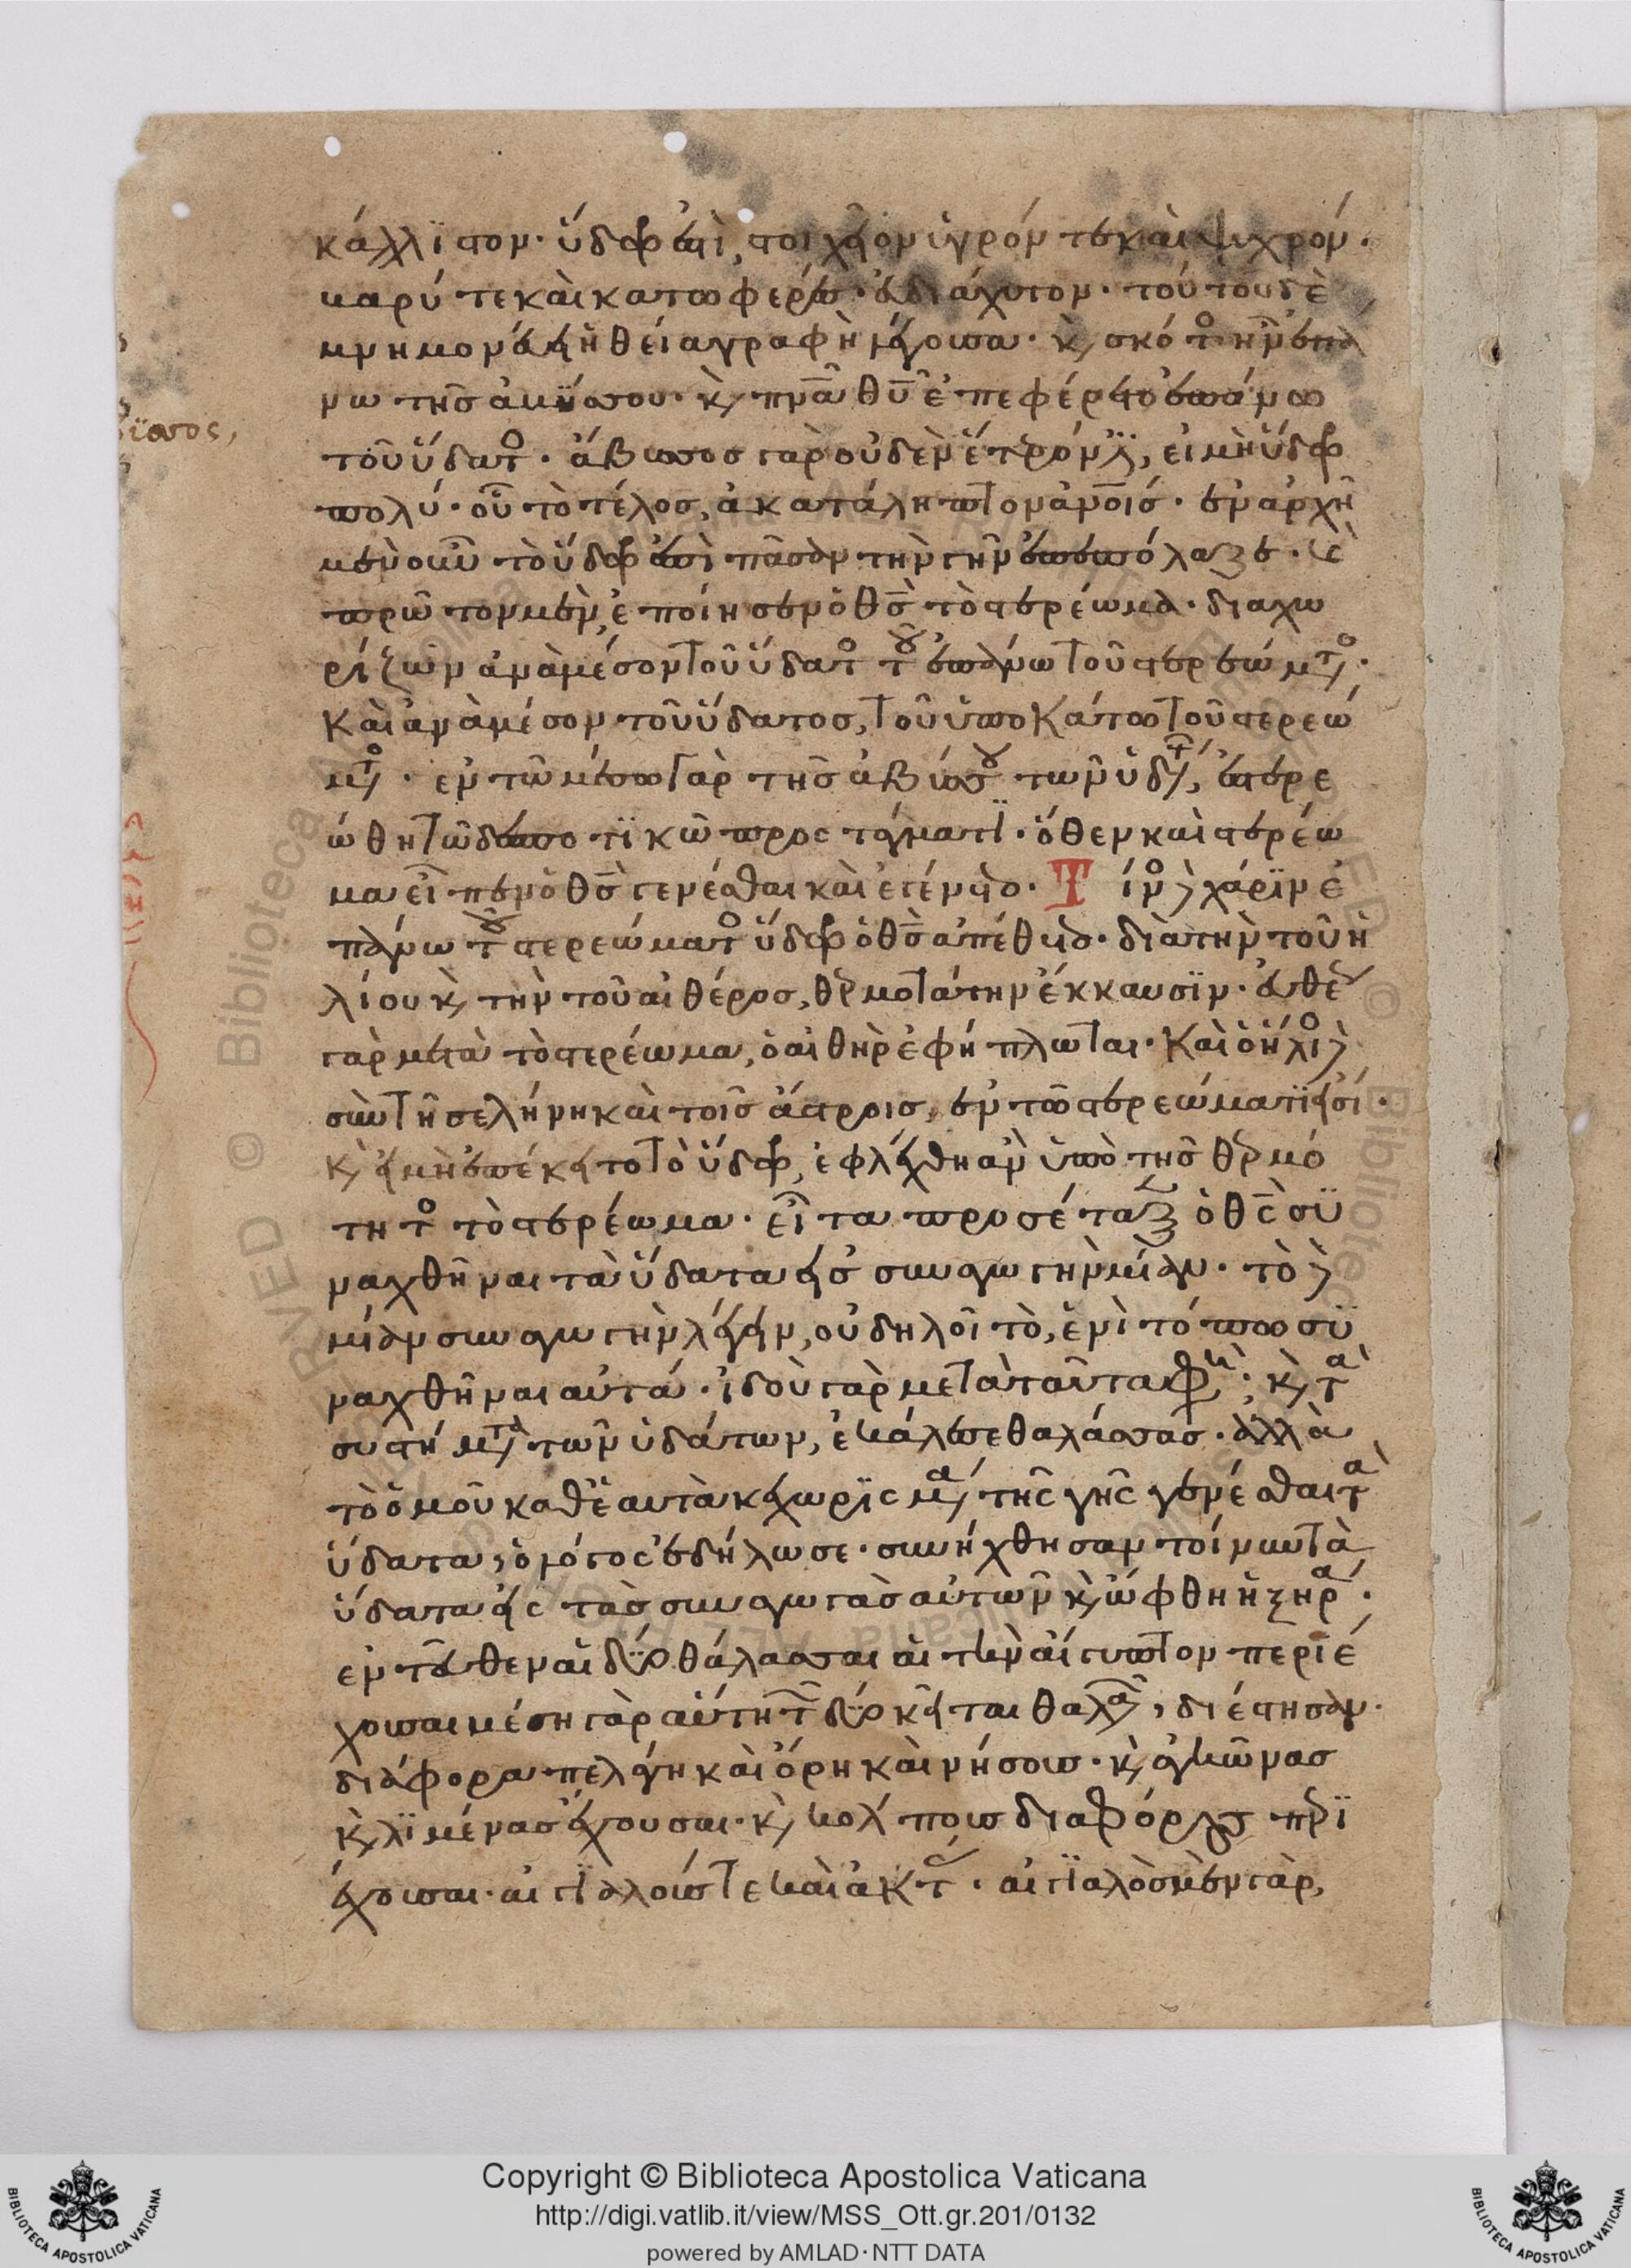 κάλλιστον· ὕδωρ ἐστὶ, στοιχεῖον ὑγρόν τε καὶ ψυχρόν·
βαρύ τε καὶ κατωφερὲς· εὐδιάχυτον· τούτου δὲ
μνημονεύει ἡ θεία γραφὴ λέγουσα· κ(αὶ) σκότος ἦν ἐπά
νω τῆς ἀβύσσου· κ(αὶ) πνᾶ θῦ ἐπεφέρετο ἐπάνω
τοῦ ὕδατος· ἄβυσσος γὰρ οὐδὲν ἕτερόν ἐστιν, εἰ μὴ ὕδωρ
πολύ· οὗ τὸ τέλος, ἀκατάληπτον ἀνοις· ἐν ἀρχῆ
μὲν οὖν τὸ ὕδωρ ἐπὶ πᾶσαν τὴν γῆν ἐπεπόλαζε· κ(αὶ)
πρῶτον μὲν, ἐποίησεν ὁ θς τὸ στερέωμα· διαχω
ρίζων ἀναμέσον τοῦ ὕδατος τοῦ ἐπάνω τοῦ στερεώματος·
καὶ ἀναμέσον τοῦ ὕδατος, τοῦ ὑποκάτω τοῦ στερεώ
ματος· ἐν τῶ μέσω γὰρ τῆς ἀβύσσου τῶν ὑδάτων, ἐστερε
ώθη τῶ δεσποτικῶ προστάγματι· ὅθεν καὶ στερέω
μα εἶπεν ὁ θς γενέσθαι καὶ ἐγένετο· Τίνος χάριν ἐ
πάνω τοῦ στερεώματος ὕδωρ ὁ θς ἀπέθετο· διὰ τὴν τοῦ ἡ
λίου κ(αὶ) τὴν τοῦ αἰθέρος, θερμοτάτην ἔκκαυσιν· εὐθέως
γὰρ μετὰ τὸ στερέωμα, ὁ αἰθὴρ ἐφήπλωται· καὶ ὁ ἥλιος
σὺν τῆ σελήνη καὶ τοῖς ἄστροις, ἐν τῶ στερεώματι εἰσί·
κ(αὶ) εἰ μὴ ἐπέκειτο τὸ ὕδωρ, ἐφλέχθη ἂν ὑπὸ τῆς θερμό
τητος τὸ στερέωμα· εἶτα προσέταξεν ὁ θς συ
ναχθῆναι τὰ ὕδατα εἰς συναγωγὴν μίαν· τὸ δὲ
μίαν συναγωγὴν λέγειν, οὐ δηλοῖ τὸ, ἑνὶ τόπω συ
ναχθῆναι αὐτά· ἰδοὺ γὰρ μετὰ ταῦτα φησὶ· κ(αὶ) τὰ
συστήματα τῶν ὑδάτων, ἐκάλεσε θαλάσσας· ἀλλὰ
τὸ ὁμοῦ καθ' ἑαυτὰ κεχωρισμένα τῆς γῆς γενέσθαι τὰ
ὕδατα, ὁ λόγος ἐδήλωσε· συνήχθησαν τοίνυν τὰ
ὕδατα εἰς τὰς συναγωγὰς αὐτῶν κ(αὶ) ὤφθη ἡ ξηρά·
ἐντεῦθεν αἱ δύο θάλασσαι αἱ τὴν αἴγυπτον περιέ
χουσαι μέση γὰρ αὕτη τῶν δύο κεῖται θαλασσῶν, διέστησαν·
διάφορα πελάγη καὶ ὄρη καὶ νήσους· κ(αὶ) ἀγκῶνας
κ(αὶ) λιμένας ἔχουσαι· κ(αὶ) κόλπους διαφόρους περι
έχουσαι· αἰγιαλούς τε καὶ ἀκτάς· αἰγιαλὸς μὲν γὰρ,